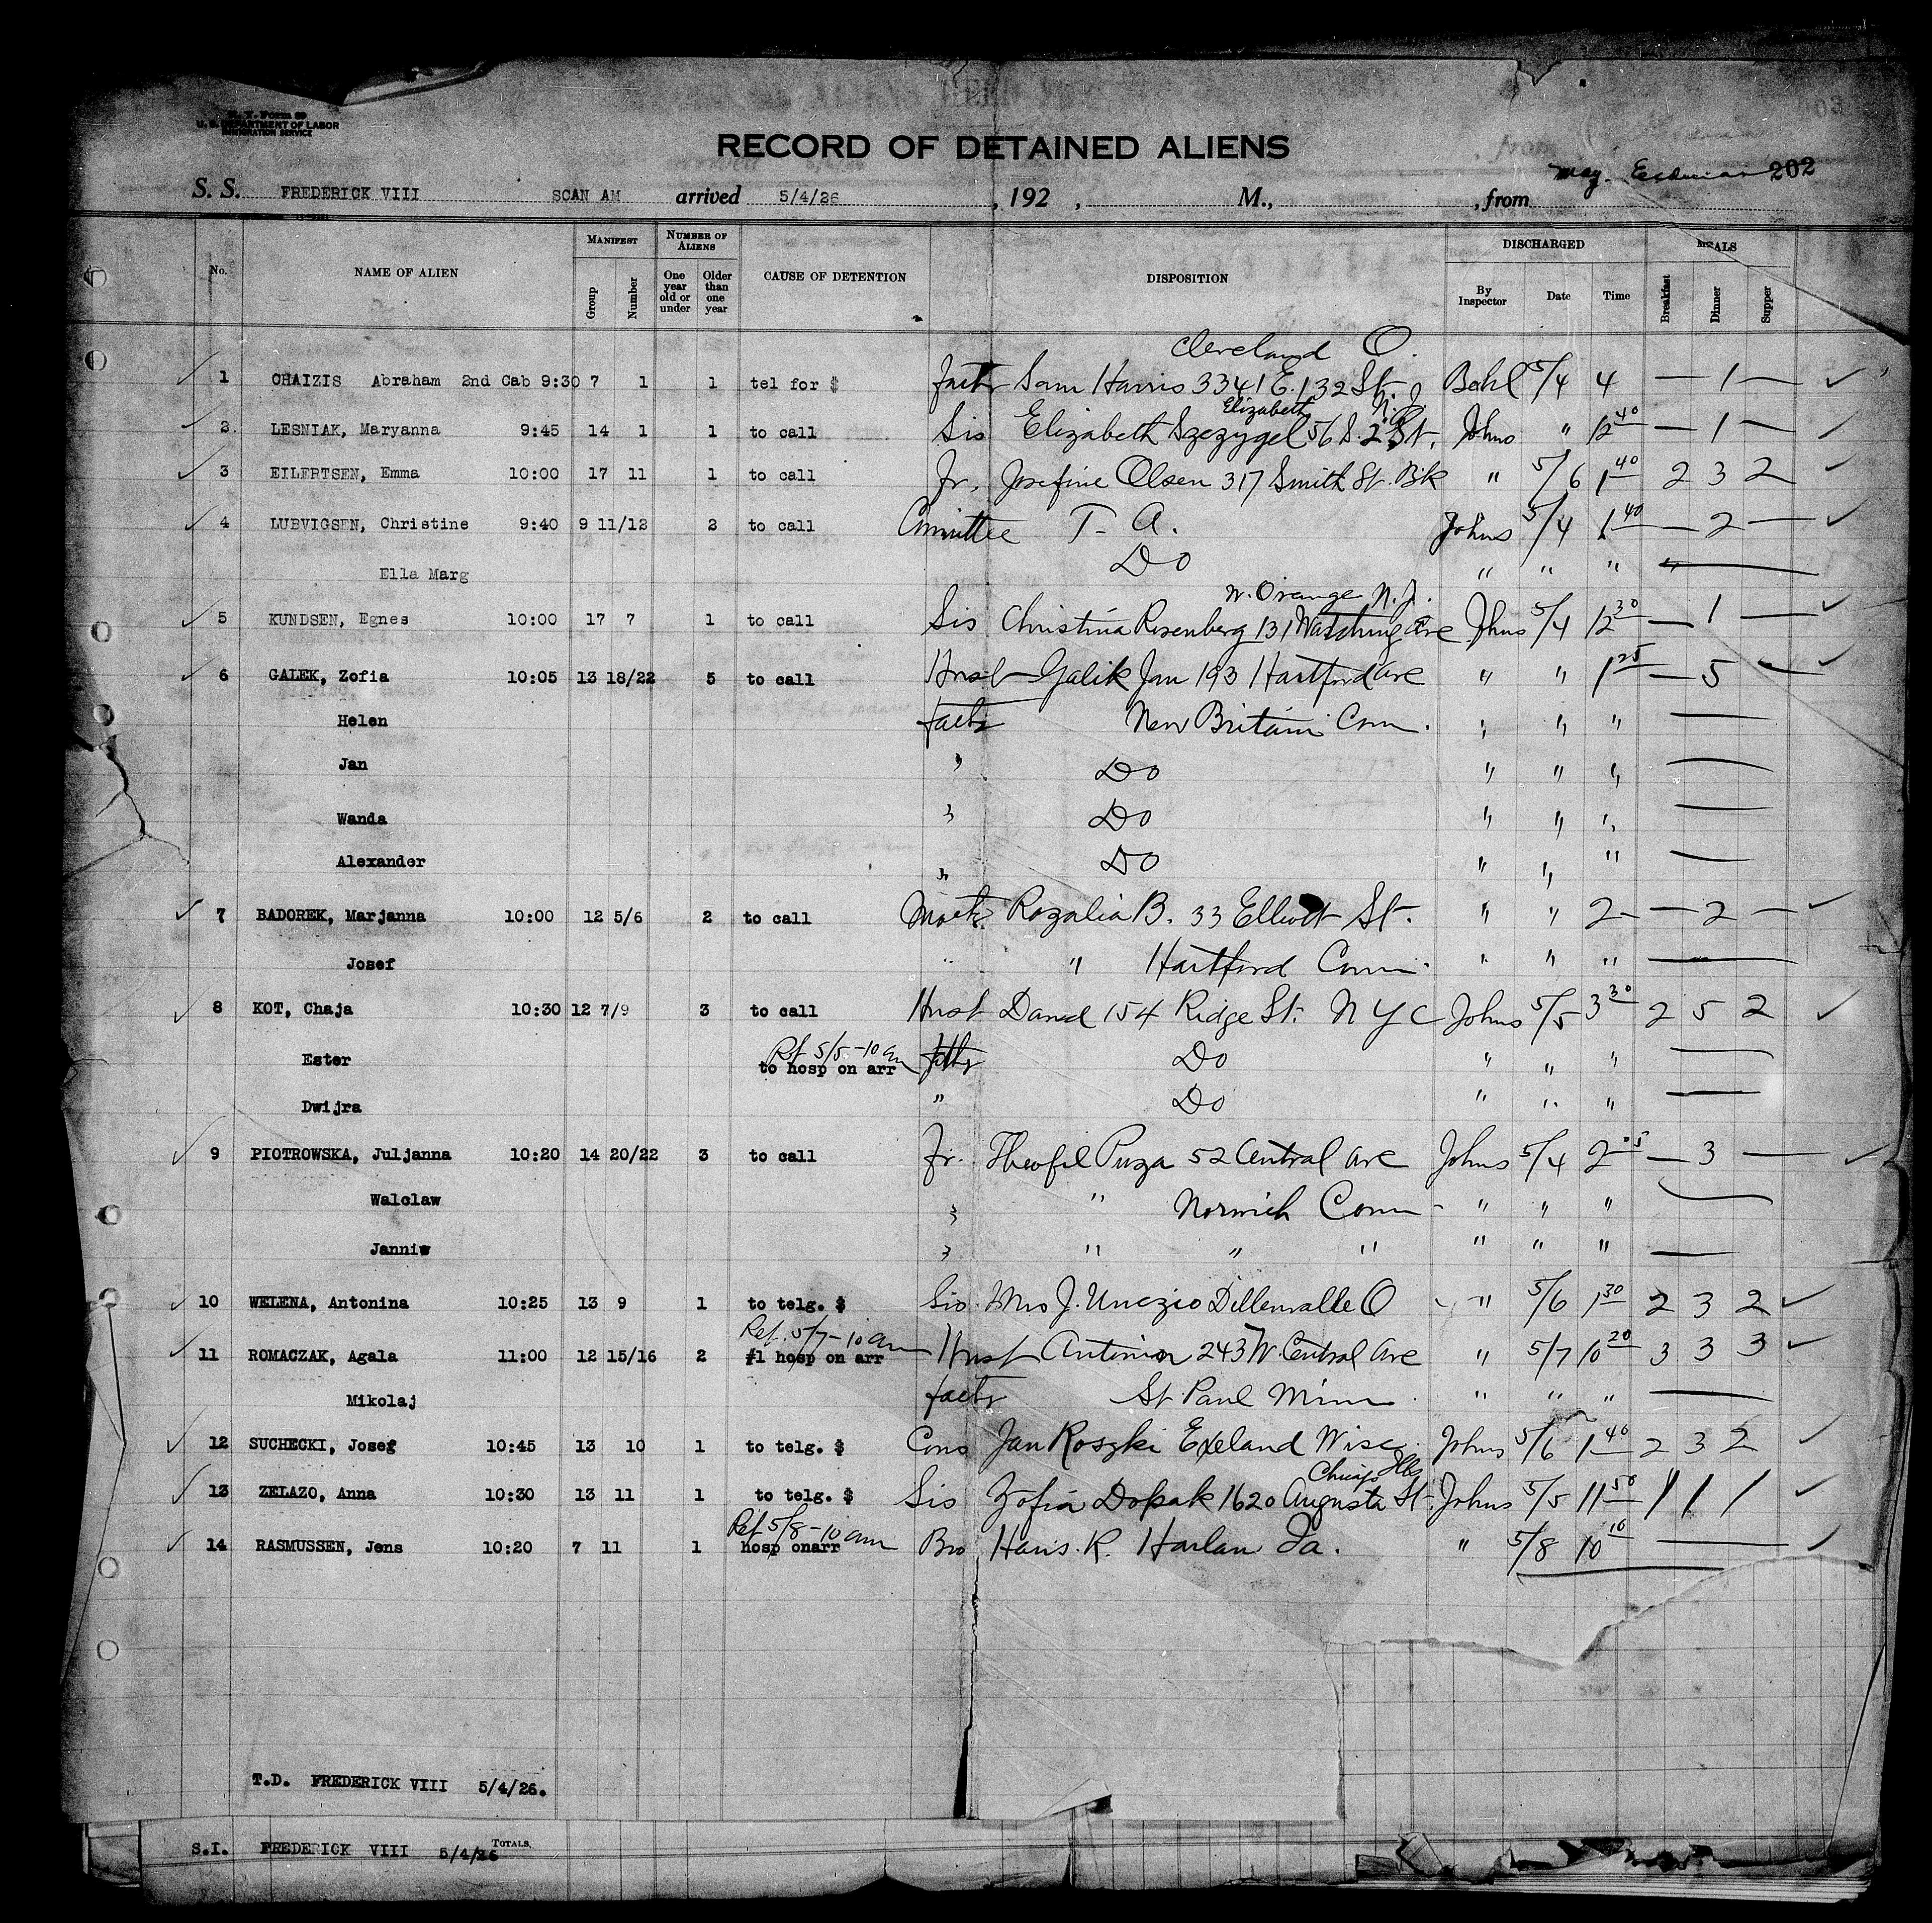 N. Y. Form 89
U. S. DEPARTMENT OF LABOR
IMMIGRATION SERVICE
RECORD OF DETAINED ALIENS
202
S. S. FREDERICK VIII SCAN AM arrived 5/4/26, 192 , M., , from
No. NAME OF ALIEN MANIFEST Group Number NUMBER OF ALIENS One year old or under Older than one year CAUSE OF DETENTION DISPOSITION DISCHARGED By Inspector Date Time MEALS Breakfast Dinner Supper
Cleveland O.
1 CHAIZIS Abraham 2nd Cab 9:30 7 1 1 tel for $ fath Sam Harris 3341 E. 132 St. Bahl 5/4 4 — 1 —
Elizabeth N. J.
2. LESNIAK, Maryanna 9:45 14 1 1 to call Sis Elizabeth Szezygel 56 S. 2 St. Johns " 12 40 — 1 —
3 EILERTSEN, Emma 10:00 17 11 1 to call Fr. Josefine Olsen 317 Smith St. Bk " 5/6 1 40 2 3 2
4 LUBVIGSEN, Christine 9:40 9 11/12 2 to call Committee T- A. Johns 5/4 1 40 — 2 —
Ella Marg Do " " "
W. Orange N. J.
5 KUNDSEN, Egnes 10:00 17 7 1 to call Sis Christina Rosenberg 131 Watchung Ave Johns 5/4 12 30 — 1 —
6 GALEK, Zofia 10:05 13 18/22 5 to call Husb Galik Jan 193 Hartford Ave " " 1 25 — 5 —
Helen fath New Britain Conn. " " "
Jan " Do " " "
Wanda " Do " " "
Alexander " Do " " "
7 BADOREK, Marjanna 10:00 12 5/6 2 to call Moth Rozalia B. 33 Elliott St. " " 2- — 2 —
Josef " " Hartford Conn. " " "
8 KOT, Chaja 10:30 12 7/9 3 to call Husb David 154 Ridge St. N Y C Johns 5/5 3 30 2 5 2
Rel 5/5-10 am
Ester to hosp on arr fath Do " " "
Dwijra " Do " " "
9 PIOTROWSKA, Juljanna 10:20 14 20/22 3 to call Fr. Theofil Puza 52 Central Ave Johns 5/4 2 05 — 3 —
Walclaw " " Norwich Conn - " " "
Janniw " " " " " " "
10 WELENA, Antonina 10:25 13 9 1 to telg. $ Sis. Mrs J. Dillenvalle O " 5/6 1 30 2 3 2
Rel. 5/7-10 am
11 ROMACZAK, Agala 11:00 12 15/16 2 #1 hosp on arr Husb 243 W. Central Ave " 5/7 10 20 3 3 3
Mikolaj fath St. Paul Minn " " "
12 SUCHECKI, Josef 10:45 13 10 1 to telg. $ Cous Jan Roszki Exeland Wisc. Johns 5/6 1 40 2 3 2
Chicago Ills
13 ZELAZO, Anna 10:30 13 11 1 to telg. $ Sis Zofia Dopak 1620 Augusta St. Johns 5/5 11 50 1 1 1
Rel 5/8-10 am
14 RASMUSSEN, Jens 10:20 7 11 1 hosp onarr Bro Hans. R. Harlan Ia. " 5/8 10 10
T.D. FREDERICK VIII 5/4/26.
TOTALS.
S.I. FREDERICK VIII 5/4/26